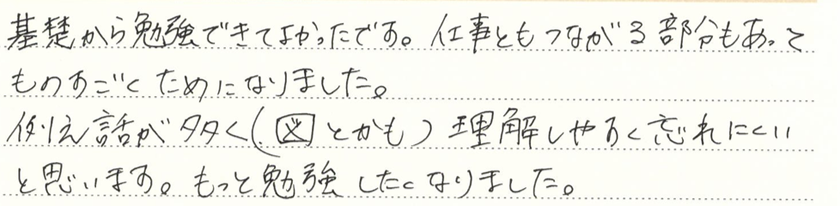 基礎から勉強できてよかったです。仕事ともつながる部分もあって
ものすごくためになりました。
例え話が多く(図とかも)理解しやすく忘れにくい
と思います。もっと勉強したくなりました。